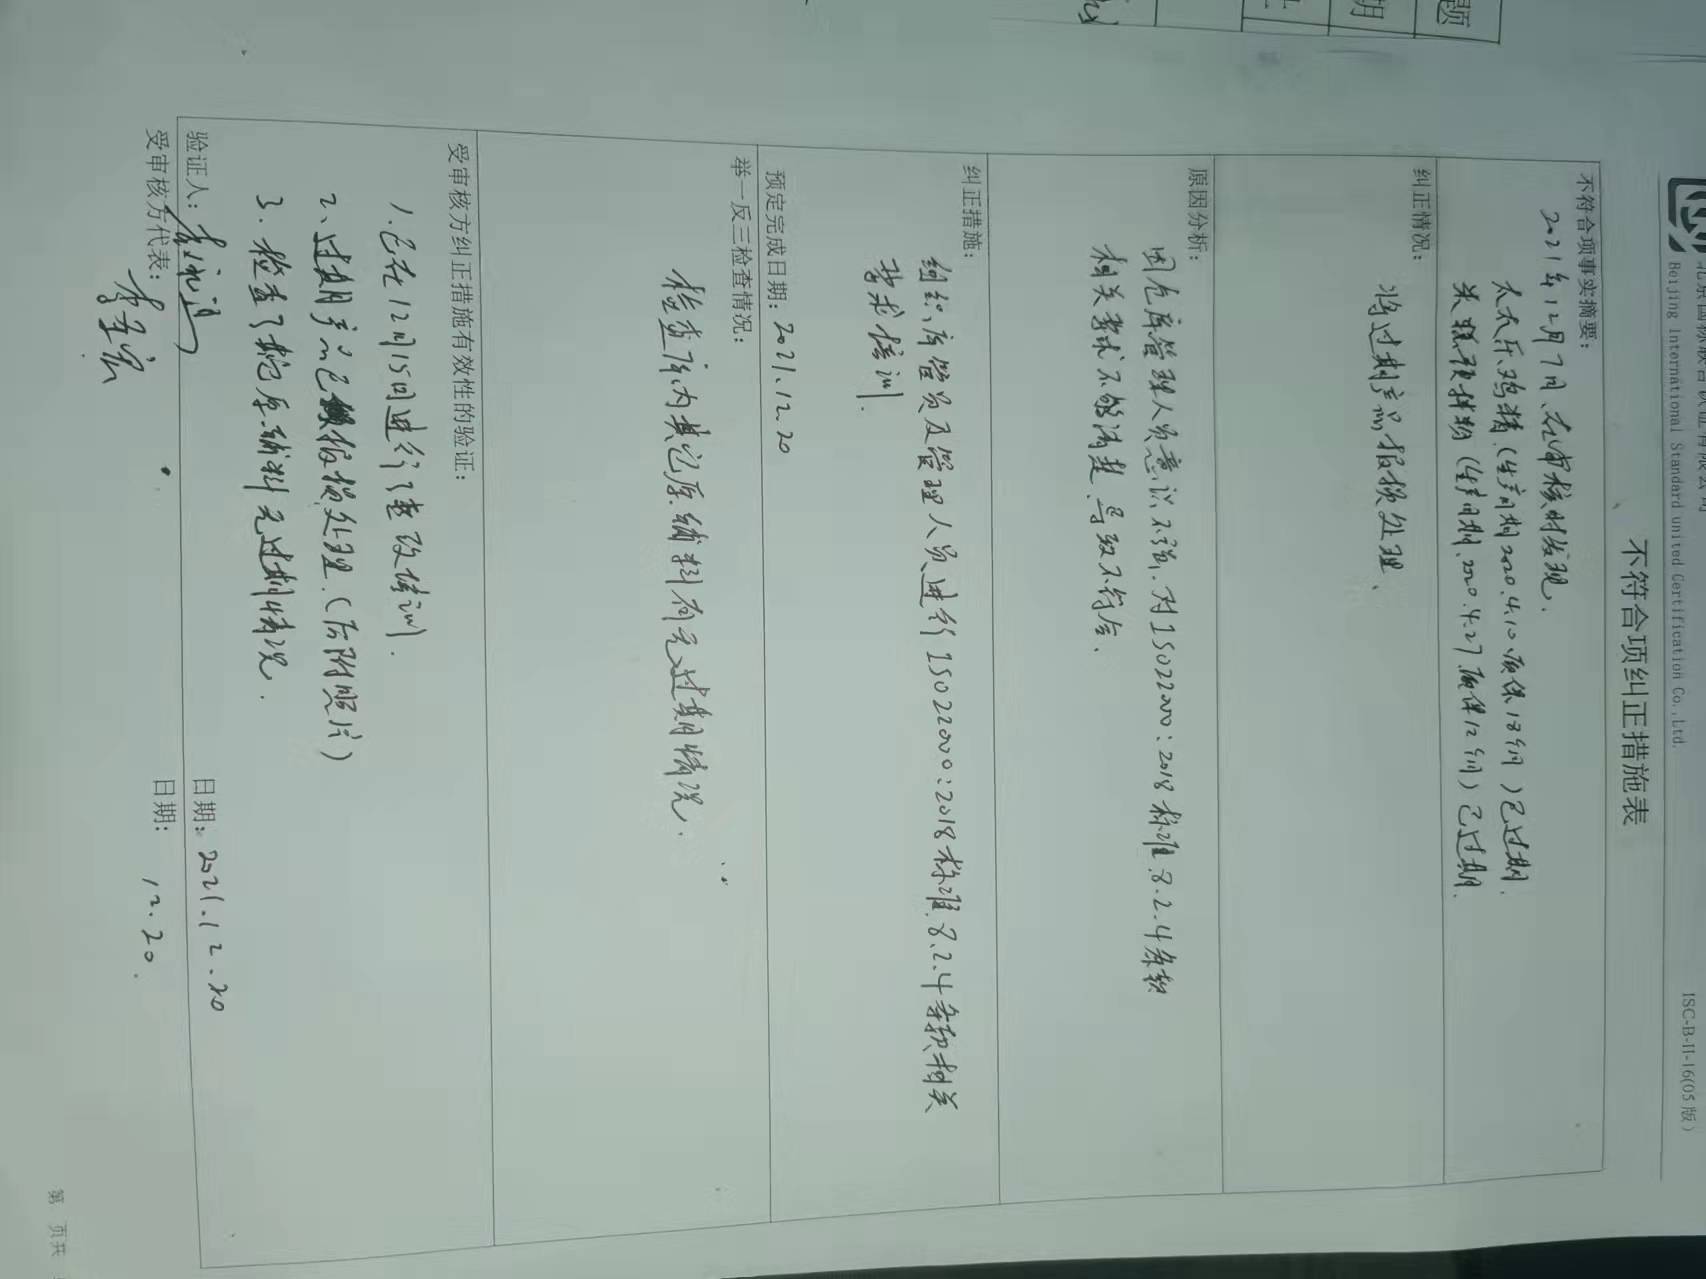 题
期
北京国标联合认证有限公司
Beijing International Standard united Certification Co.,Ltd.
ISC-B-II-16(05版)
不符合项纠正措施表
不符合项事实摘要：
2021年12月7日、在审核时发现.
太太乐鸡精（生产日期2020.4.10、质保18个月）已过期.
（生产日期.2020.4.27.质保12个月）已过期.
纠正情况：
将过期产品报损处理、
原因分析：
因仓库管理人员意识不强、对ISO22000：2018标准8.2.4条款
相关要求不够清楚、导致不符合、
纠正措施：
组织库管员及管理人员进行ISO22000：2018标准8.2.4条款相关
要求培训.
预定完成日期：2021.12.20
举一反三检查情况：
检查库内其它原辅料有无过期情况.
受审核方纠正措施有效性的验证：
1.已在12月15日进行了整改培训.
2、过期产品已报损处理.（后附照片）
3.检查了其它原辅料无过期情况.
验证人：
日期：2021.12.20
受审核方代表：
日期：
12.20.
第 页共